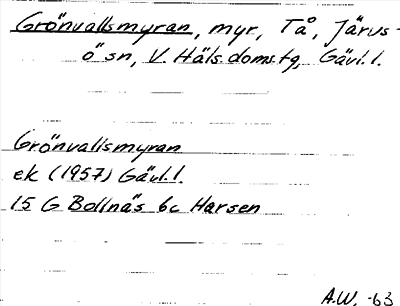 Grönvallsmyran, myr, Tå, Järvs-
ö sn, V. Häls. doms.tg, Gävl. l.
Grönvallsmyran
ek (1957) Gävl. l.
15 G Bollnäs 6c Harsen
A.W. -63